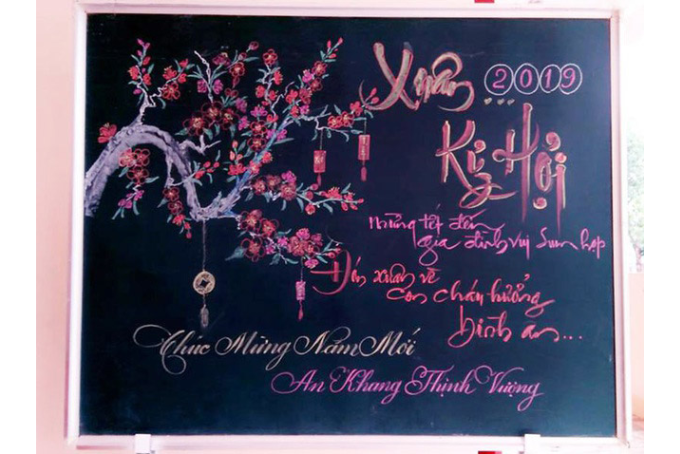 Xuân 2019
Kỷ Hợi
Mừng tết đến
gia đình vui sum họp
Đón xuân về
con cháu hưởng
bình an...
Chúc Mừng Năm Mới
An Khang Thịnh Vượng